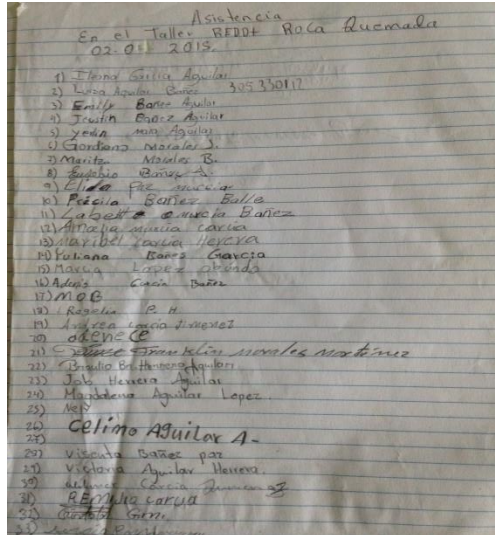 Asistencia
En el Taller REDD+ Roca Quemada
02-0 2015.
1) Garcia Aguilar
2) Luisa Aguilar Bañez 305330117
3) Emily Bañez Aguilar
4) Joustin Bañez Aguilar
5) Yedin Aguilar
6) Gordiano Morales J.
7) Maritza Morales B.
8) Eusebio Bañez
9) Elida Paz murcia
10) Précila Bañez Balle
11) murcia Bañez
12) Amalia murcia carcia
13) Maribel Garcia Herera
14) Yuliana Bañez Garcia
15) Lopez
16) Garcia Bañez
17) MOB
18) Rogelio P. H.
19) Andrea Garcia Jimenez
20) odenece
21) Franklin morales martinez
22) Braulio Herrera Aguilar
23) Job Herrera Aguilar
24) Magdalena Aguilar Lopez.
25)
26) Celimo Aguilar A-
27)
28) Bañez paz
29) Victoria Aguilar Herrera.
30) Garcia
31) REMilio Carcia
32)
33)